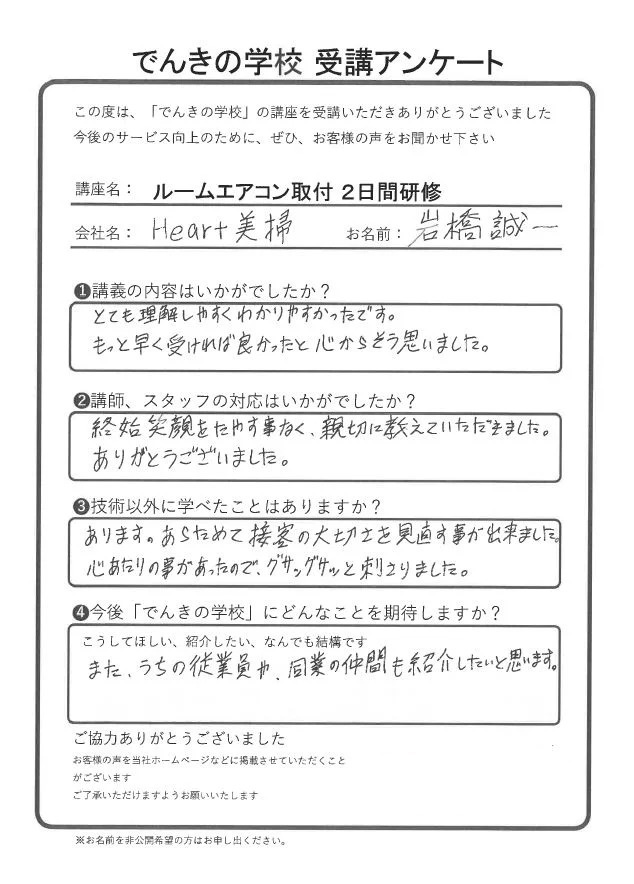 でんきの学校 受講アンケート
この度は、「でんきの学校」の講座を受講いただきありがとうございました
今後のサービス向上のために、ぜひ、お客様の声をお聞かせ下さい
講座名： ルームエアコン取付 2日間研修
会社名： Heart美掃 お名前： 岩橋誠一
❶講義の内容はいかがでしたか？
とても理解しやすくわかりやすかったです。
もっと早く受ければ良かったと心からそう思いました。
❷講師、スタッフの対応はいかがでしたか？
終始笑顔をたやす事なく、親切に教えていただきました。
ありがとうございました。
❸技術以外に学べたことはありますか？
あります。あらためて接客の大切さを見直す事が出来ました。
心あたりの事があったので、グサッグサッと刺さりました。
❹今後「でんきの学校」にどんなことを期待しますか？
こうしてほしい、紹介したい、なんでも結構です
また、うちの従業員や、同業の仲間も紹介したいと思います。
ご協力ありがとうございました
お客様の声を当社ホームページなどに掲載させていただくこと
がございます
ご了承いただけますようお願いいたします
※お名前を非公開希望の方はお申し出ください。